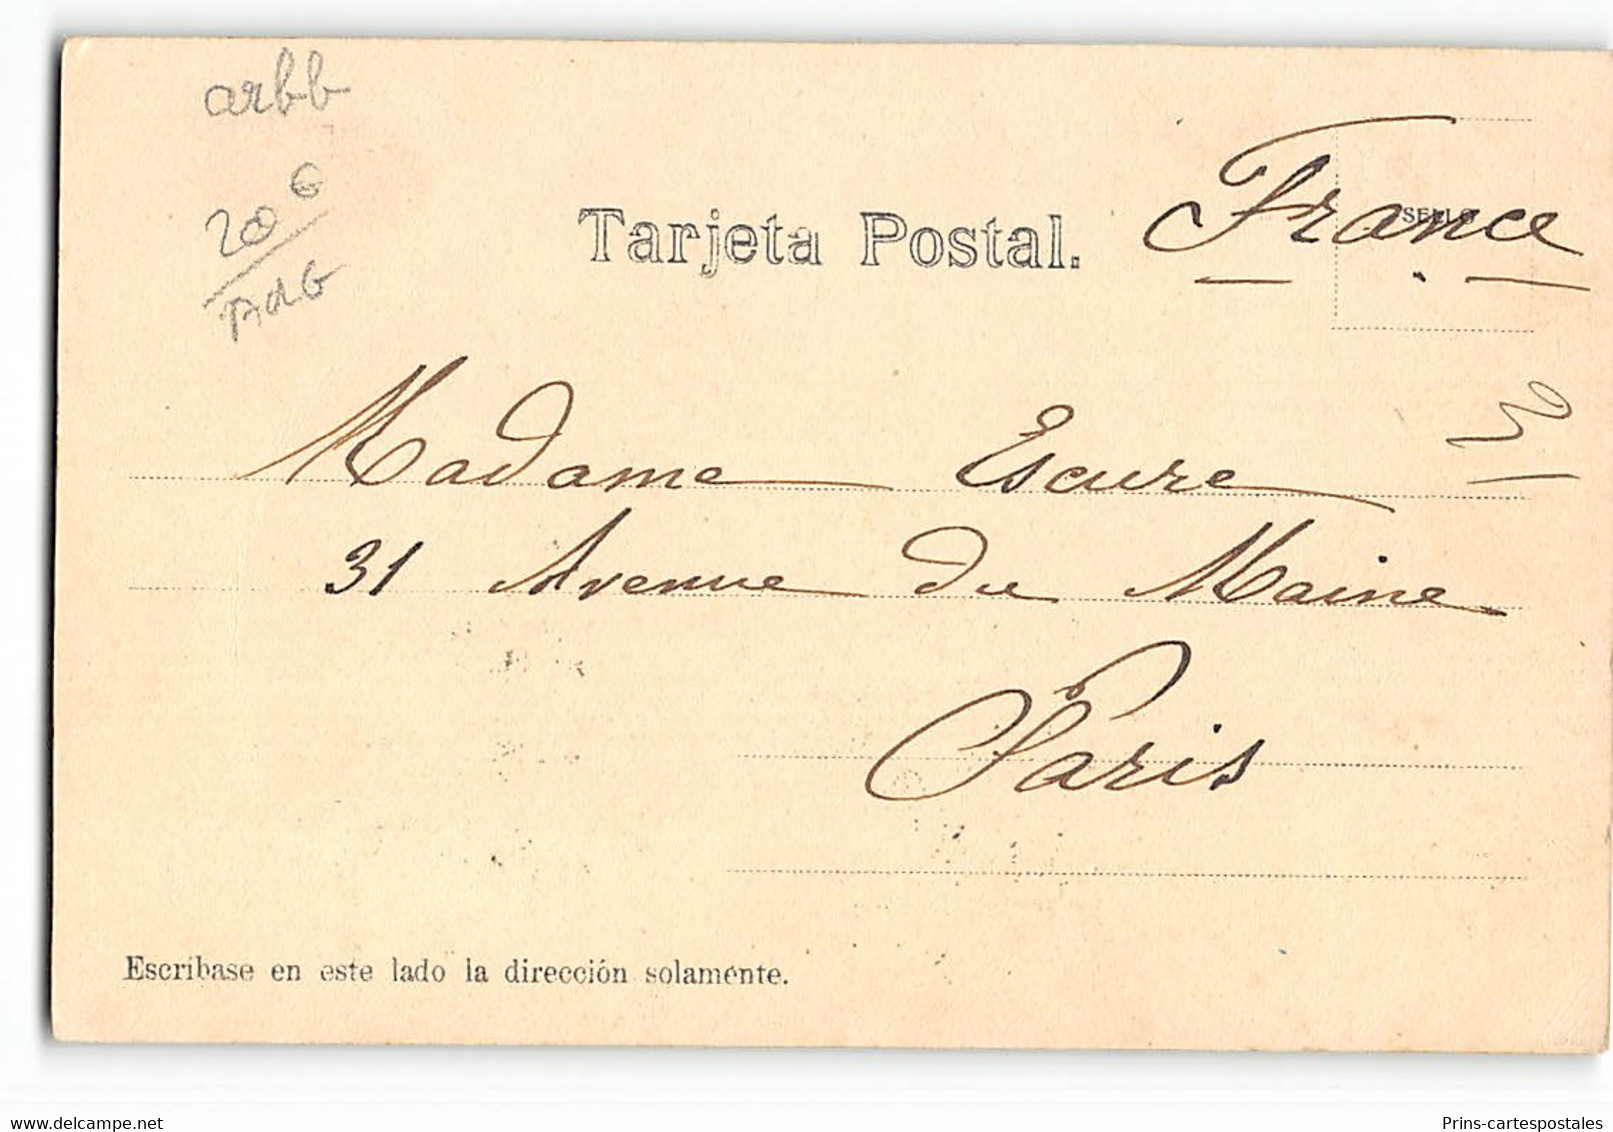 arbb
20 €
Tarjeta Postal.
France
SELLO
Madame Escure
31 Avenue du Maine
Paris
Escríbase en este lado la dirección solamente.
delcampe.net
Prins-cartespostales